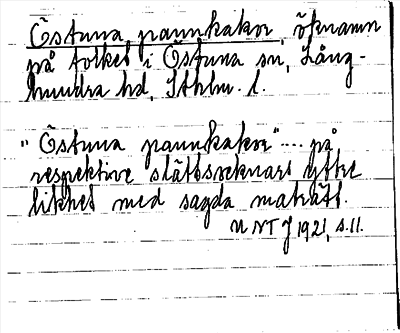 Östuna pannkakor, öknamn
på folket i Östuna sn, Lång-
hundra hd, Sthlm. l.
"Östuna pannkakor" .... på
respektive slättsocknars yttre
likhet med sagda maträtt.
UNT J 1921, s. 11.